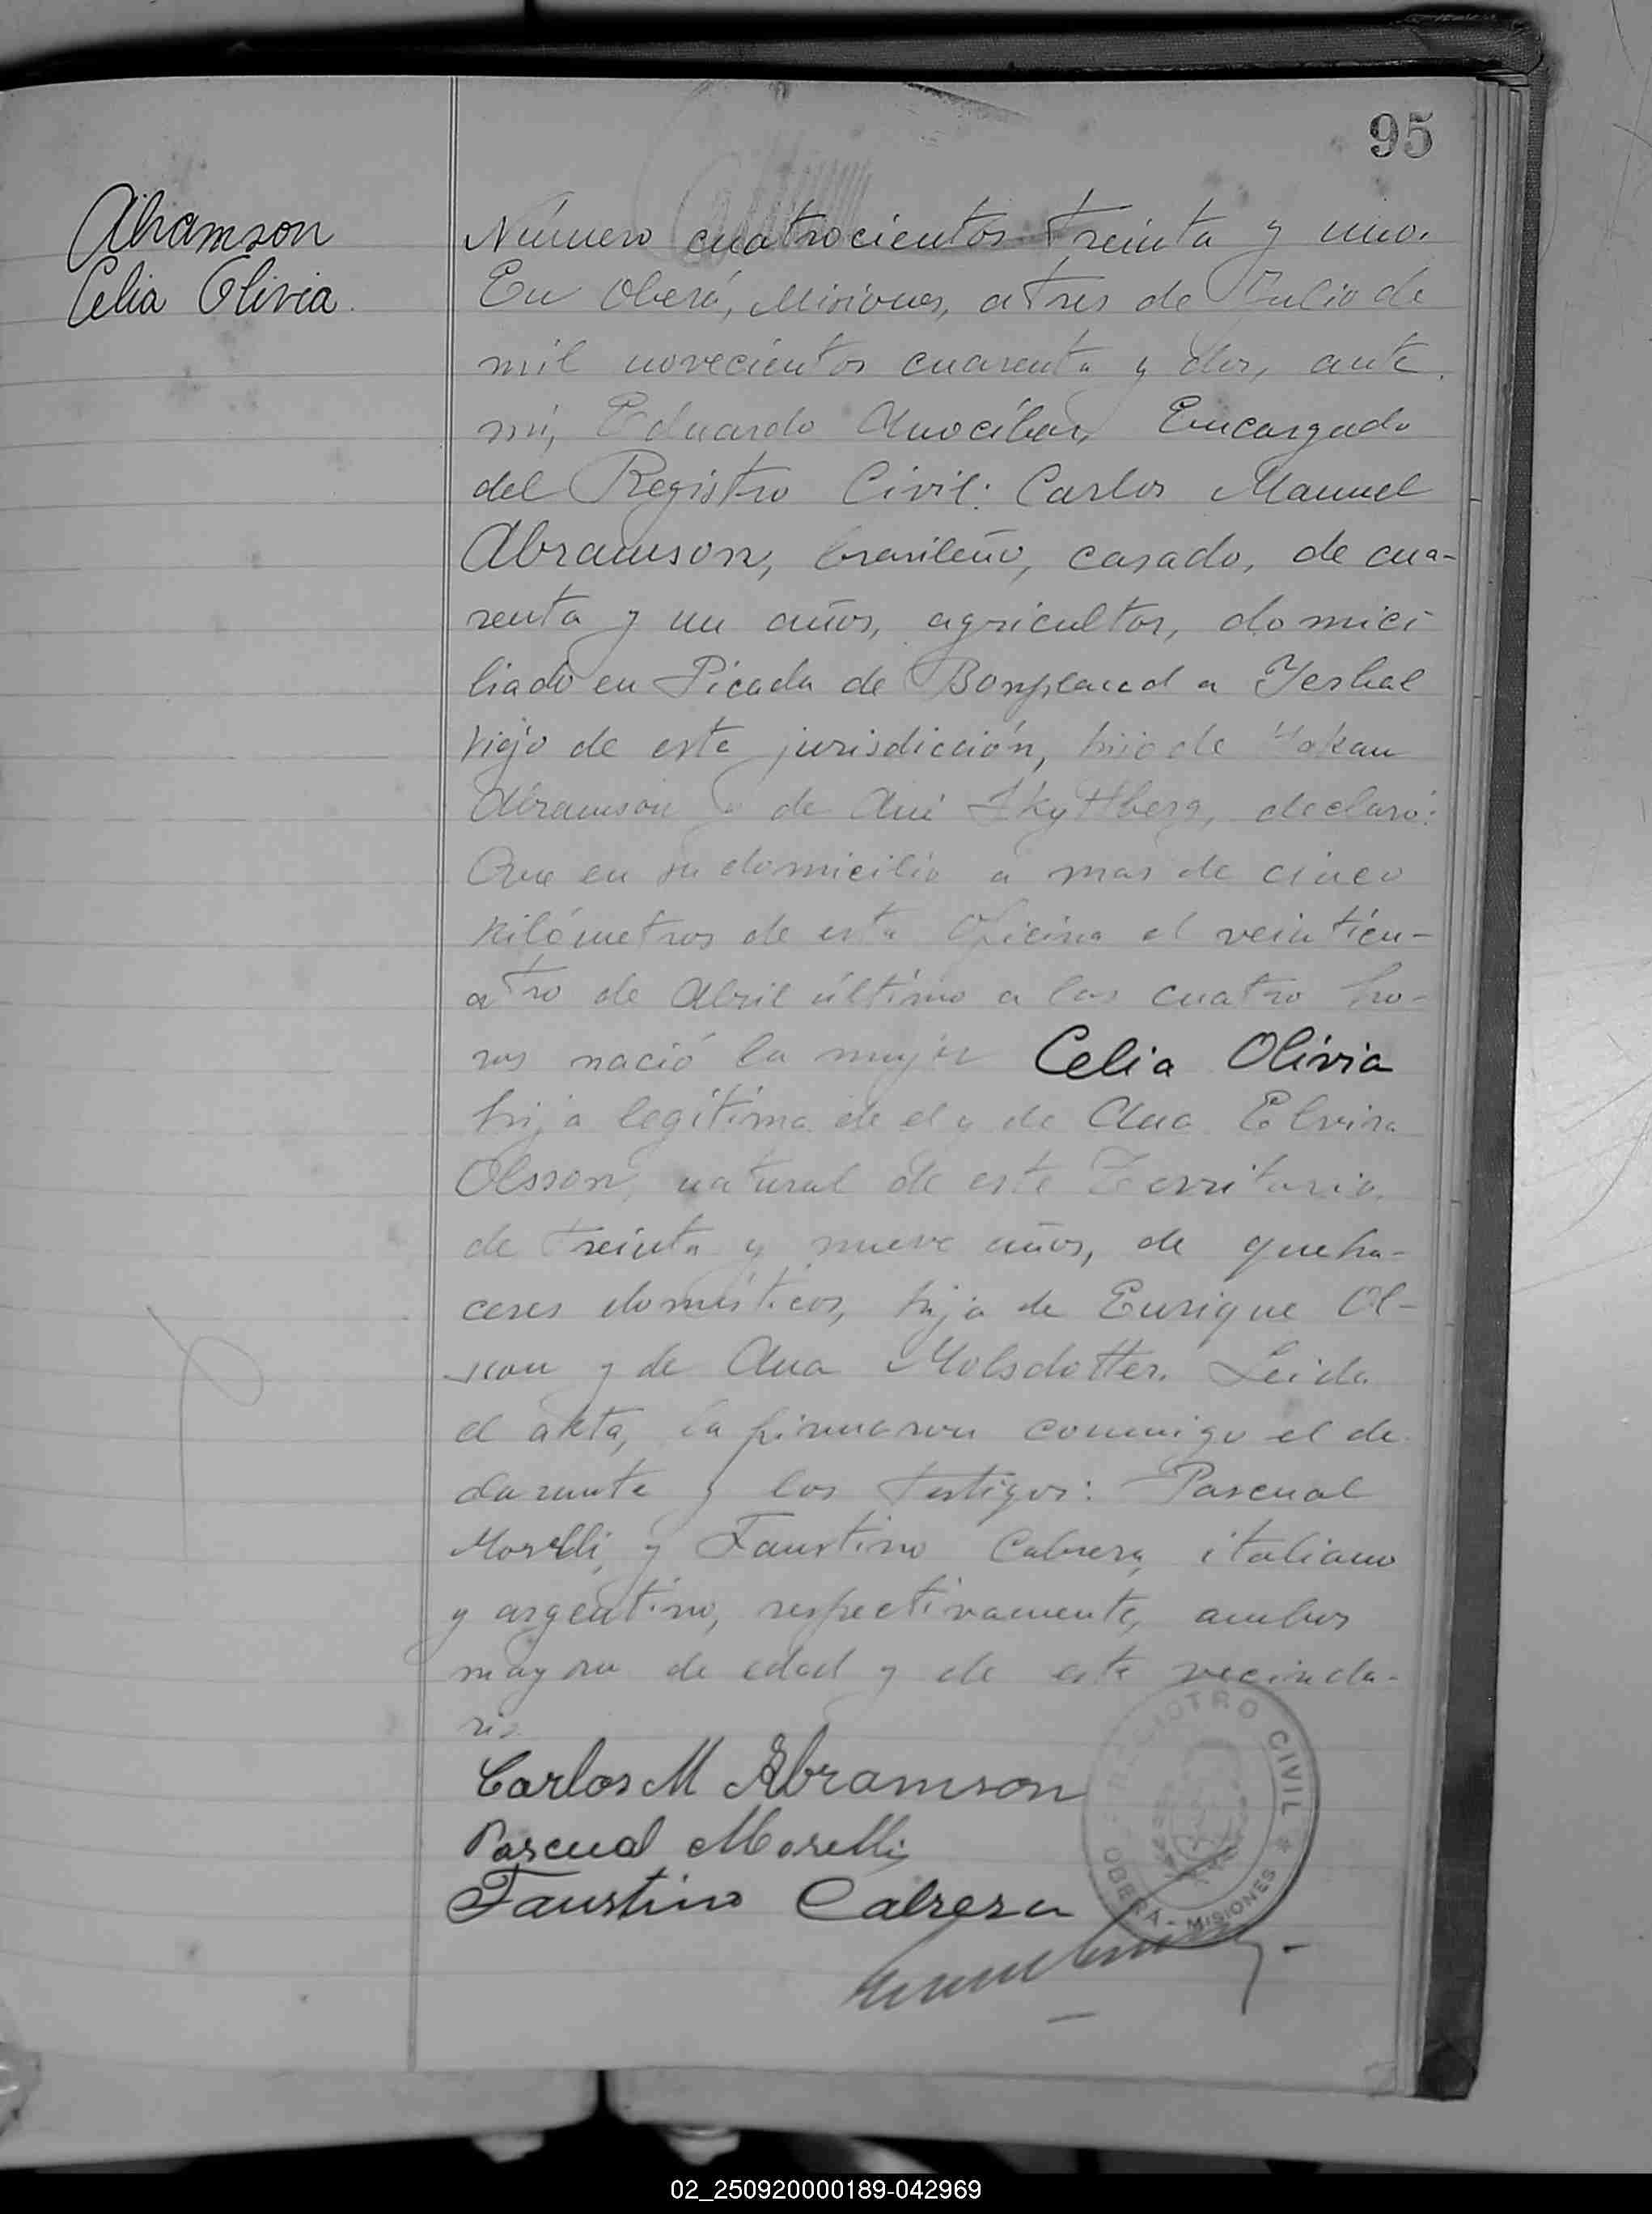 95
Abramson
Celia Olivia
Número cuatrocientos treinta y uno.
En Oberá, Misiones, a tres de Julio de
mil novecientos cuarenta y dos, ante
mi, Eduardo Anocíbar, Encargado
del Registro Civil: Carlos Manuel
Abramson, brasileño, casado, de cua-
renta y un años, agricultor, domici
liado en Picada de Bonpland a Yerbal
viejo de esta jurisdicción, hijo de Hakan
Abramson y de Ani declaró:
Que en su domicilio a mas de cinco
kilómetros de esta Oficina el veinticu-
atro de Abril último a las cuatro ho-
ras nació la mujer Celia Olivia
hija legítima de el y de Ana Elvira
Olsson, natural de este Territorio,
de treinta y nueve años, de queha-
ceres domésticos, hija de Enrique Ol-
sson y de Ana Molsdotter. Leida
el akta, la firmaron conmigo el de
clarante y los testigos: Pascual
Morelli, y Faustino Cabrera, italiano
y argentino, respectivamente, ambos
mayores de edad y de este vecinda-
rio.
Carlos M Abramson
Pascual Morelli
Faustino Cabrera
REGISTRO CIVIL * OBERÁ - MISIONES
02_250920000189-042969